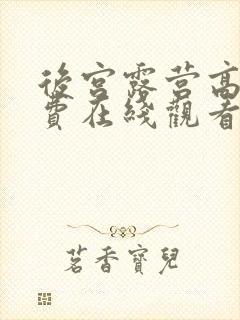 後宮露营高
費在綫觀看
茗香寶兒